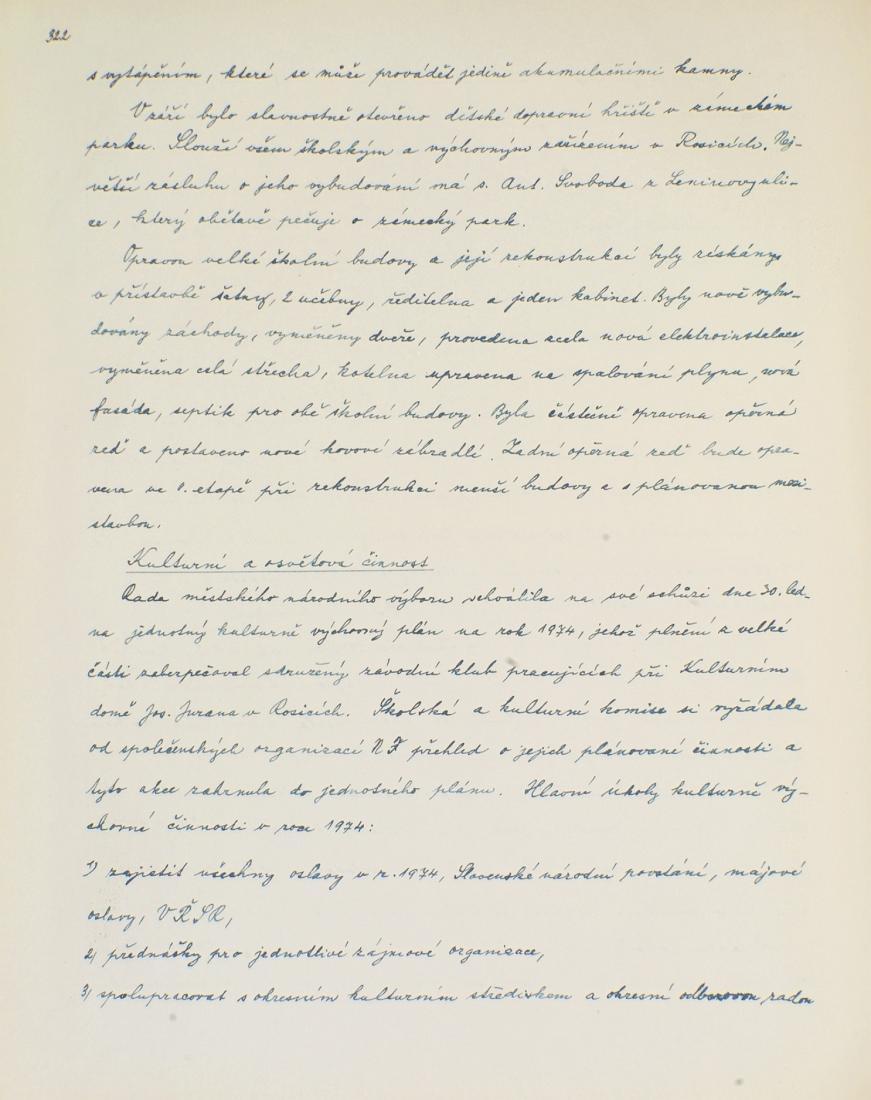 322
s vytápěním, které se může provádět jedině akumulačními kamny.
V září bylo slavnostně otevřeno dětské dopravní hřiště v zámeckém
parku. Slouží všem školským a výchovným zařízením v Rosicích. Nej-
větší zásluhu o jeho vybudování má s. Ant. Svoboda z Leninovy uli-
ce, který obětavě pečuje o zámecký park.
Opravou velké školní budovy a její rekonstrukcí byly získány
v přístavbě šatny, 2 učebny, ředitelna a jeden kabinet. Byly nově vybu-
dovány záchody, vyměněny dveře, provedena zcela nová elektroinstalace,
vyměněna celá střecha, kotelna upravena na spalování plynu, nová
fasáda, septik pro obě školní budovy. Byla částečně opravena opěrná
zeď a postaveno nové kovové zábradlí. Zadní opěrná zeď bude opra-
vena ve etapě při rekonstrukci menší budovy a s plánovanou mezi-
stavbou.
Kulturní a osvětová činnost
Rada městského národního výboru schválila na své schůzi dne 30. led-
na jednotný kulturně výchovný plán na rok 1974, jehož plnění z velké
části zabezpečoval sdružený závodní klub pracujících při Kulturním
domě Jos. Jurana v Rosicích. Školská a kulturní komise si vyžádala
od společenských organizací NF přehled o jejich plánované činnosti a
tyto akce zahrnula do jednotného plánu. Hlavní úkoly kulturně vý-
chovné činnosti v roce 1974:
1) zajistit všechny oslavy v r. 1974, Slovenské národní povstání, májové
oslavy, VŘSR,
2) přednášky pro jednotlivé zájmové organizace,
3) spolupracovat s okresním kulturním střediskem a okresní odborovou radou